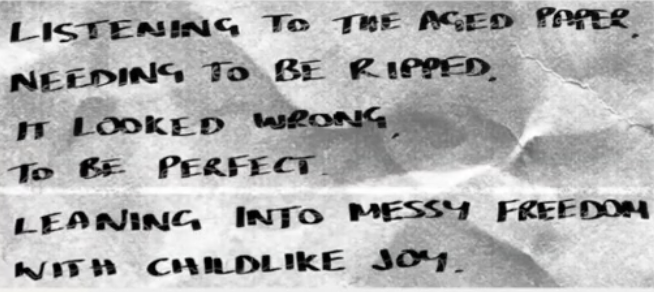 LISTENING TO THE AGED PAPER,
NEEDING TO BE RIPPED,
IT LOOKED WRONG,
TO BE PERFECT.
LEANING INTO MESSY FREEDOM
WITH CHILDLIKE JOY.